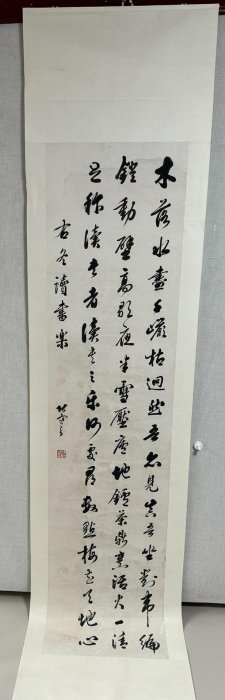 木落水盡千巖枯迥然吾亦見真吾坐對韋編
鐙動壁高歌夜半雪壓廬地鑪茶鼎烹活火一清
足稱讀書者讀書之樂何處尋數點梅花天地心
右冬讀書樂